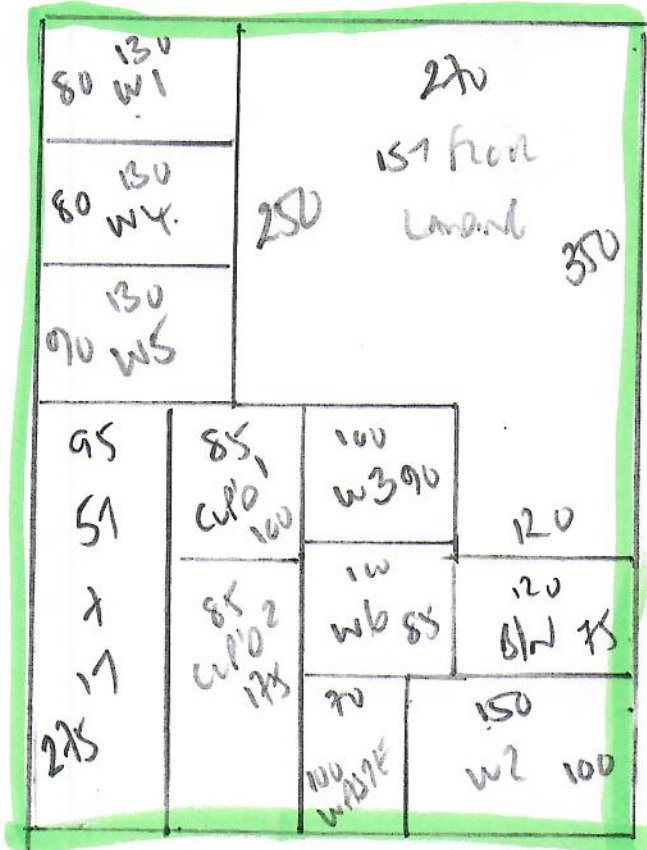 130
80 W1
130
80 W4.
130
90 W5
270
1ST FLOOR
LANDING
250
350
95
ST
X
17
275
85
CUP'D 1
160
85
CUP'D 2
175
100
W3 90
100
W6 85
120
120
B/W 75
70
100
WASTE
150
W2 100